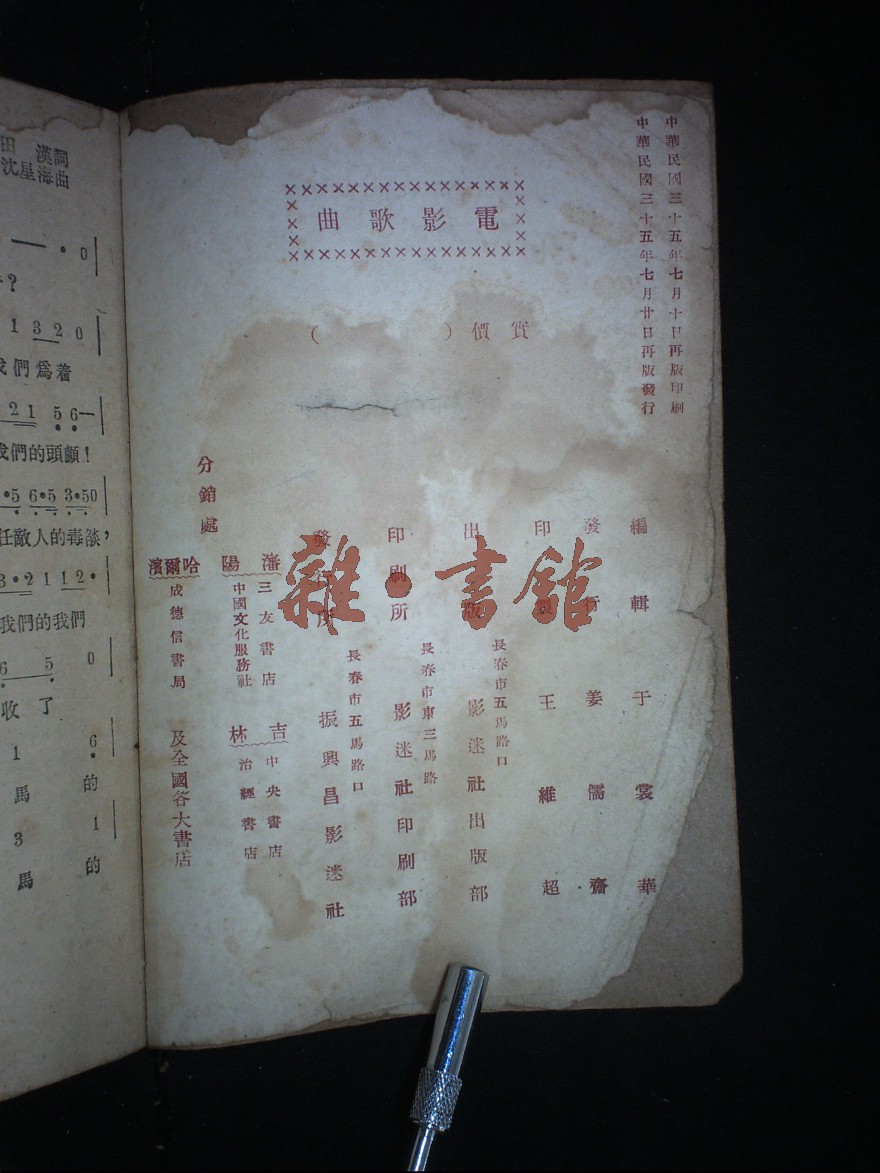 中華民國三十五年七月十日再版印刷
中華民國三十五年七月廿日再版發行
電影歌曲
實價（　　　）
編輯 于裳華
發行 姜儒齋
印製 王維超
長春市五馬路口
出版 影迷社出版部
長春市東三馬路
印刷所 影迷社印刷部
長春市五馬路口
發行所 振興昌影迷社
分銷處
瀋陽
三友書店
中國文化服務社
吉林
中央書店
治經書店
哈爾濱
成德信書局
及全國各大書店
雜·書館
田漢詞
沈星海曲
— · 0
?
1 3 2 0
我們爲着
2 1 5 6 —
我們的頭顱！
·5 6·5 3·50
任敵人的毒燄，
3·2 1 1 2·
我們的我們
6 5 0
收了
1 6
馬 的
3 1
馬 的